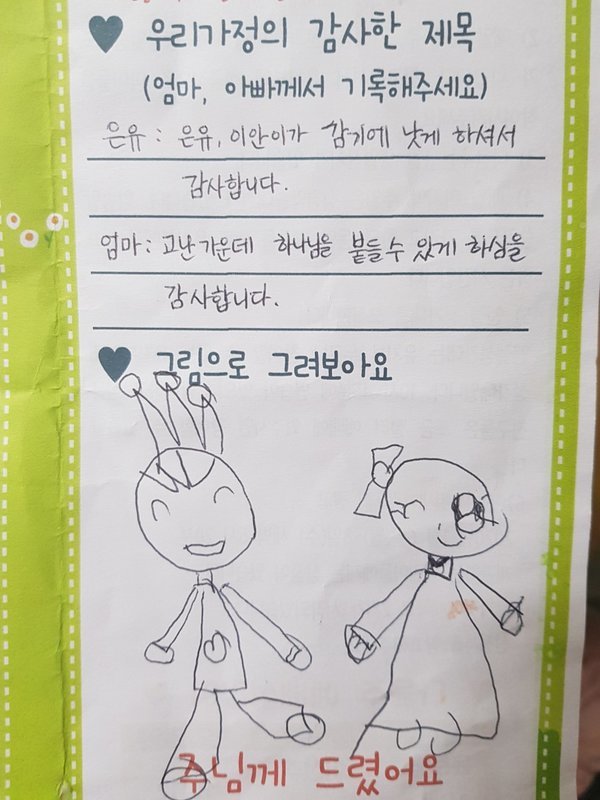 우리가정의 감사한 제목
(엄마, 아빠께서 기록해주세요)
은유 : 은유, 이안이가 감기에 낫게 하셔서
감사합니다.
엄마 : 고난가운데 하나님을 붙들수 있게 하심을
감사합니다.
그림으로 그려보아요
주님께 드렸어요